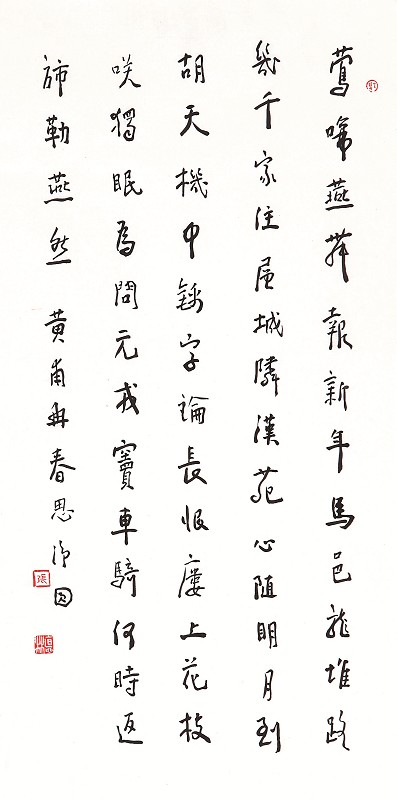 鶯啼燕舞報新年馬邑龍堆路
幾千家住層城隣漢苑心随明月到
胡天機中錦字論長恨廔上花枝
咲獨眠為問元戎竇車騎何時返
旆勒燕然 黃甫冉春思 净因
張